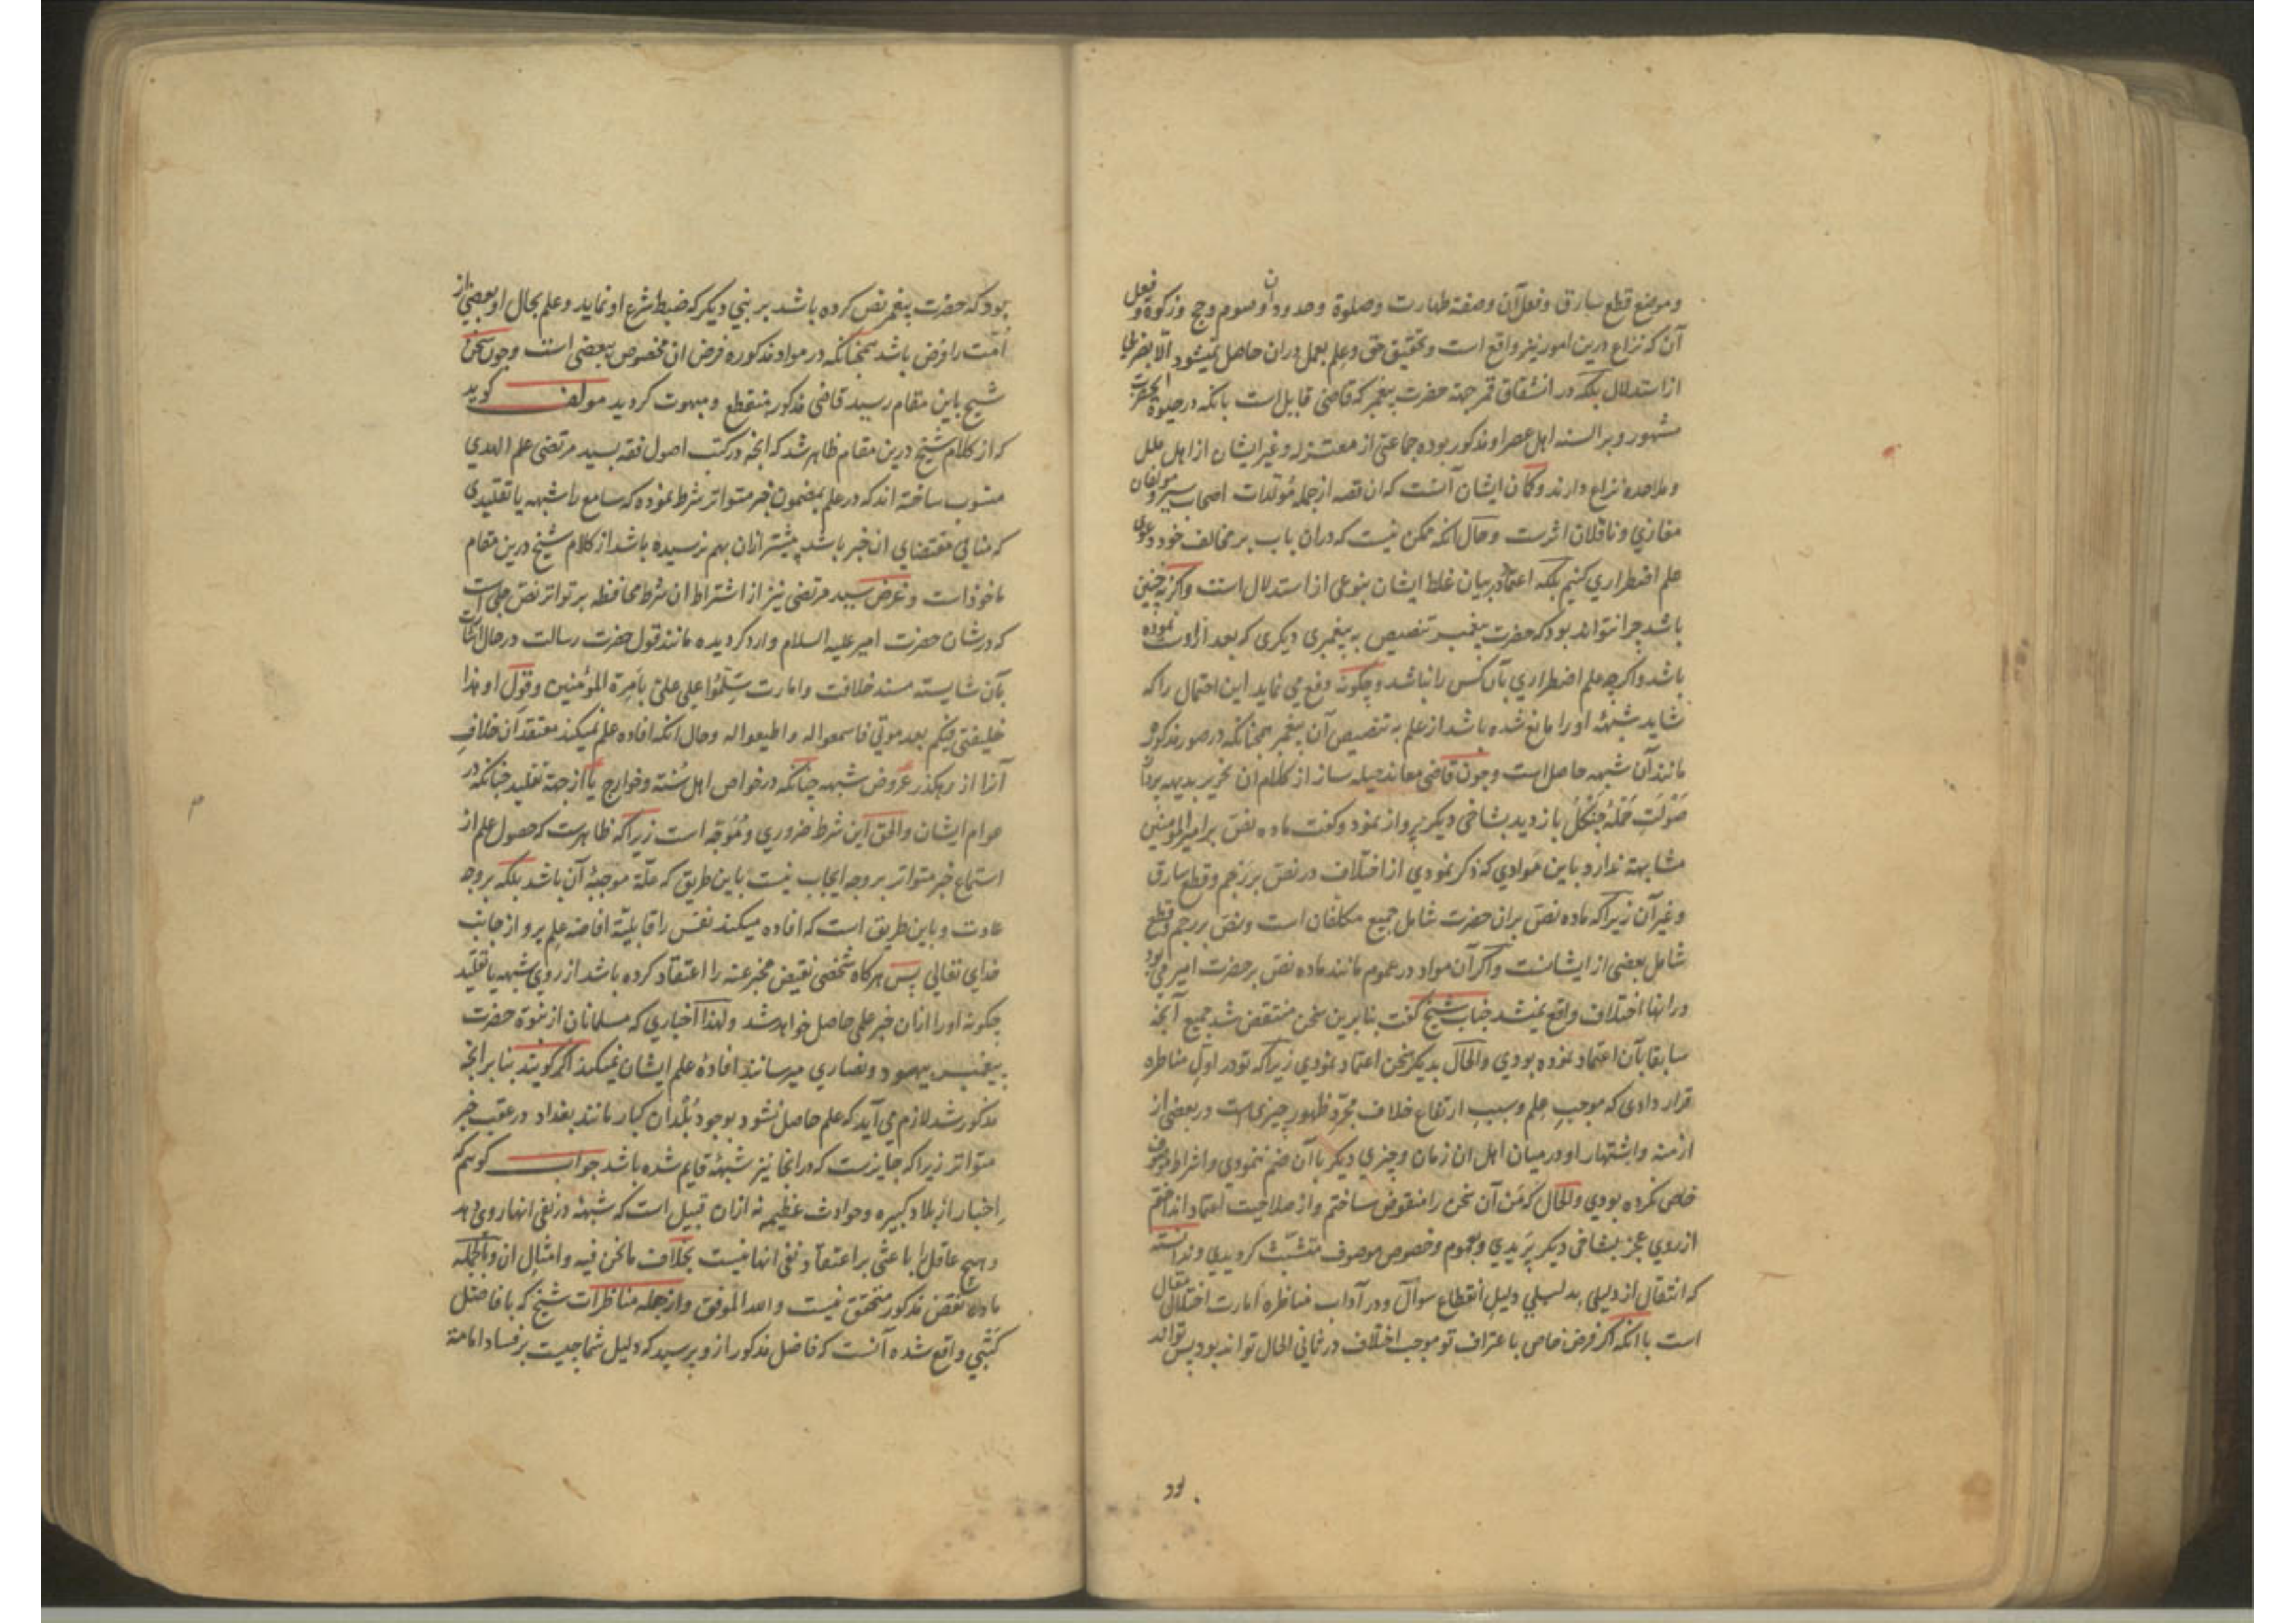 و موضع قطع سارق و فعل آن و صفة طهارت و صلوة و حدود آن و صوم و حج و زکوة و فعل
آن که نزاع درین امور نیز واقع است و تحقیق حق و علم بعمل دران حاصل نمیشود الا بضربی
از استدلال بلکه در انشقاق قمر جهة حضرت پیغمبر که قاضی قایل است بانکه در حیوة آنحضرت
مشهور و بر السنه اهل عصر او مذکور بوده جماعتی از معتزله و غیر ایشان از اهل ملل
و ملاحده نزاع دارند و کمان ایشان آنست که ان قصه از جمله مولدات اصحاب سیر و مولفان
مغازی و ناقلان اثرست و حال انکه ممکن نیست که دران باب بر مخالف خود دعوی
علم اضطراری کنیم بلکه اعتماد بر بیان غلط ایشان بنوعی از استدلال است و اکر نه چنین
باشد چرا نتواند بود که حضرت پیغمبر تنصیص به پیغمبری دیکری که بعد ازوست نموده
باشد و اکر چه علم اضطراری بآن کس را نباشد و چکونه دفع می نماید این احتمال را که
شاید شبهۀ او را مانع شده باشد از علم به تنصیص آن پیغمبر همچنانکه در صور مذکوره
مانند آن شبهه حاصل است و چون قاضی معاند حیله ساز از کلام ان نحریر بدیهه پرداز
صولت حمله جنکل باز دید بشاخی دیکر پرواز نمود و کفت ماده نص بر امیرالمومنین
مشابهة ندارد باین موادی که ذکر نمودی از اختلاف در نص بر رجم و قطع سارق
و غیر آن زیرا که ماده نص بران حضرت شامل جمیع مکلفان است و نص بر رجم و قطع
شامل بعضی از ایشانست و اکر آن مواد در عموم مانند ماده نص بر حضرت امیر می بود
در انها اختلاف واقع نمیشد جناب شیخ کفت بنا برین سخن منتقض شد جمیع آنچه
سابقا بآن اعتماد نموده بودی و الحال بدیکر سخن اعتماد نمودی زیرا که تو در اول مناظره
قرار دادی که موجب علم و سبب ارتفاع خلاف مجرد ظهور چیزی است در بعضی از
ازمنه و اشتهار او در میان اهل ان زمان و چیزی دیکر با آن ضم ننمودی و اشراط موصوف
خاص نکرده بودی و الحال که من آن سخن را منقوض ساختم و از صلاحیت اعتماد انداختم
از روی عجز بشاخی دیکر پریدی و بعموم و خصوص موصوف متشبث کردیدی و ندانسته
که انتقال از دلیلی بدلیلی دلیل انقطاع سوآل و در آداب مناظره امارت اختلال مقال
است با انکه اکر فرض خاص باعتراف تو موجب اختلاف در ثانی الحال تواند بود پس تواند
بود
بود که حضرت پیغمبر نص کرده باشد بر نبی دیکر که ضبط شرع او نماید و علم بحال او بعضی از
امت را فرض باشد همچنانکه در مواد مذکوره فرض ان مخصوص ببعضی است و چون سخن
شیخ باین مقام رسید قاضی مذکور منقطع و مبهوت کردید مولف کوید
که از کلام شیخ درین مقام ظاهر شد که انچه در کتب اصول فقه بسید مرتضی علم الهدی
منسوب ساخته اند که در علم بمضمون خبر متواتر شرط نموده که سامع را شبهه یا تقلیدی
که منافی مقتضای ان خبر باشد پیشتر ازان بهم نرسیده باشد از کلام شیخ درین مقام
ماخوذ است و غرض سید مرتضی نیز از اشتراط ان شرط محافظه بر تواتر نص جلی است
که در شان حضرت امیر علیه السلام وارد کردیده مانند قول حضرت رسالت در حال اشارت
بآن شایسته مسند خلافت و امارت سلموا علی علی بامرة المؤمنین و قول او هذا
خلیفتی فیکم بعد موتی فاسمعوا له و اطیعوا له و حال انکه افاده علم نمیکند معتقدان خلاف
آنرا از رهکذر عروض شبهه چنانکه در خواص اهل سنة و خوارج یا از جهة تقلید چنانکه در
عوام ایشان و الحق این شرط ضروری و موجه است زیرا که ظاهرست که حصول علم از
استماع خبر متواتر بر وجه ایجاب نیست باین طریق که علة موجبۀ آن باشد بلکه بر وجه
عادت و باین طریق است که افاده میکند نفس را قابلیة افاضه علم برو از جانب
خدای تعالی پس هرکاه شخصی نقیض مخبر عنه را اعتقاد کرده باشد از روی شبهه یا تقلید
چکونه او را ازان خبر علمی حاصل خواهد شد و لهذا اخباری که مسلمانان از نبوة حضرت
پیغمبر بیهود و نصاری میرسانند افادۀ علم ایشان نمیکند اکر کویند بنا بر انچه
مذکور شد لازم می آید که علم حاصل نشود بوجود بلدان کبار مانند بغداد در عقب خبر
متواتر زیرا که جایزست که در انجا نیز شبهۀ قایم شده باشد جواب کویم که
اخبار از بلاد کبیره و حوادث عظیمه نه ازان قبیل است که شبهۀ در نفی انها روی دهد
و هیچ عاقل را باعثی بر اعتقاد نفی انها نیست بخلاف ما نحن فیه و امثال ان و بالجمله
ماده نقض مذکور متحقق نیست و الله الموفق و از جمله مناظرات شیخ که با فاضل
کتبی واقع شده آنست که فاضل مذکور از و پرسید که دلیل شما چیست بر فساد امامة